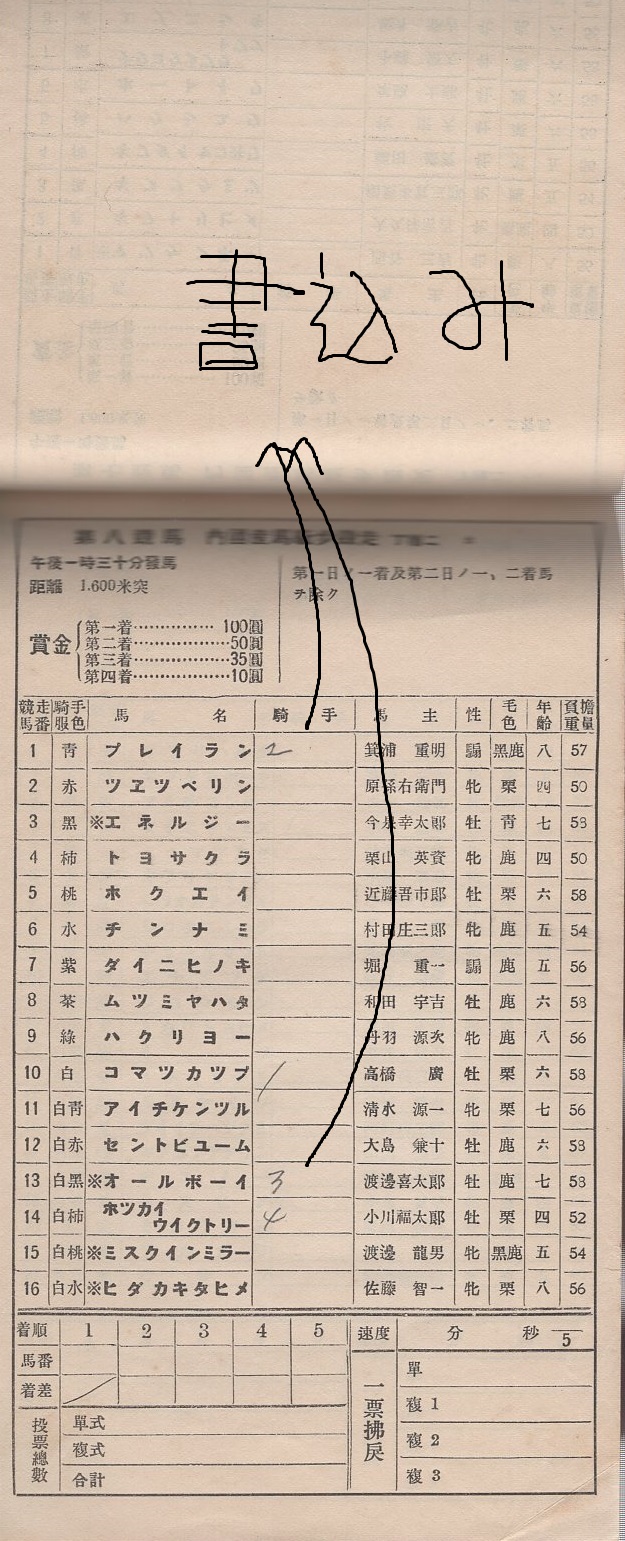 書込み
午後一時三十分發馬
距離 1.600米突
第一日ノ一着及第二日ノ一、二着馬
ヲ除ク
賞金
第一着……………100圓
第二着……………50圓
第三着……………35圓
第四着……………10圓
競走馬番 騎手服色 馬名 騎手 馬主 性 毛色 年齡 負擔重量
1 靑 プレイラン 2 箕浦重明 騸 黑鹿 八 57
2 赤 ツヱツペリン 原孫右衞門 牝 栗 四 50
3 黑 ※エネルジー 今泉幸太郞 牡 靑 七 58
4 柿 トヨサクラ 栗山英資 牝 鹿 四 50
5 桃 ホクエイ 近藤吾市郞 牡 栗 六 58
6 水 チンナミ 村田庄三郞 牝 鹿 五 54
7 紫 ダイニヒノキ 堀重一 騸 鹿 五 56
8 茶 ムツミヤハタ 和田宇吉 牡 鹿 六 58
9 綠 ハクリヨー 丹羽源次 牝 鹿 八 56
10 白 コマツカツプ 1 高橋廣 牡 栗 六 58
11 白靑 アイチケンツル 淸水源一 牝 栗 七 56
12 白赤 セントビユーム 大島兼十 牡 鹿 六 58
13 白黑 ※オールボーイ 3 渡邊喜太郞 牡 鹿 七 58
14 白柿 ホツカイウイクトリー 4 小川福太郞 牡 栗 四 52
15 白桃 ※ミスクインミラー 渡邊龍男 牝 黑鹿 五 54
16 白水 ※ヒダカキタヒメ 佐藤智一 牝 栗 八 56
着順 1 2 3 4 5 速度 分 秒 5
馬番
着差
投票總數
單式
複式
合計
一票拂戾
單
複1
複2
複3